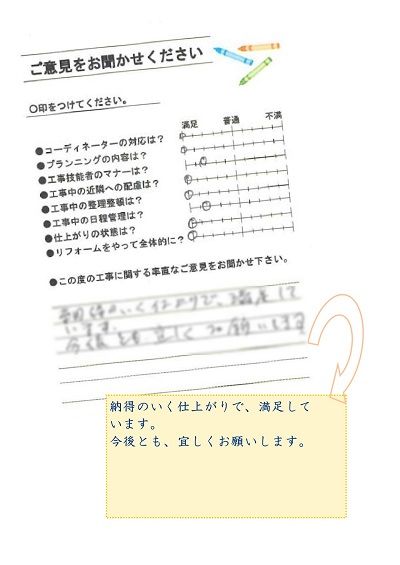 ご意見をお聞かせください
〇印をつけてください。
満足 普通 不満
●コーディネーターの対応は？
●プランニングの内容は？
●工事技能者のマナーは？
●工事中の近隣への配慮は？
●工事中の整理整頓は？
●工事中の日程管理は？
●仕上がりの状態は？
●リフォームをやって全体的に？
●この度の工事に関する率直なご意見をお聞かせ下さい。
納得のいく仕上がりで、満足して
います。
今後とも、宜しくお願いします。
納得のいく仕上がりで、満足して
います。
今後とも、宜しくお願いします。